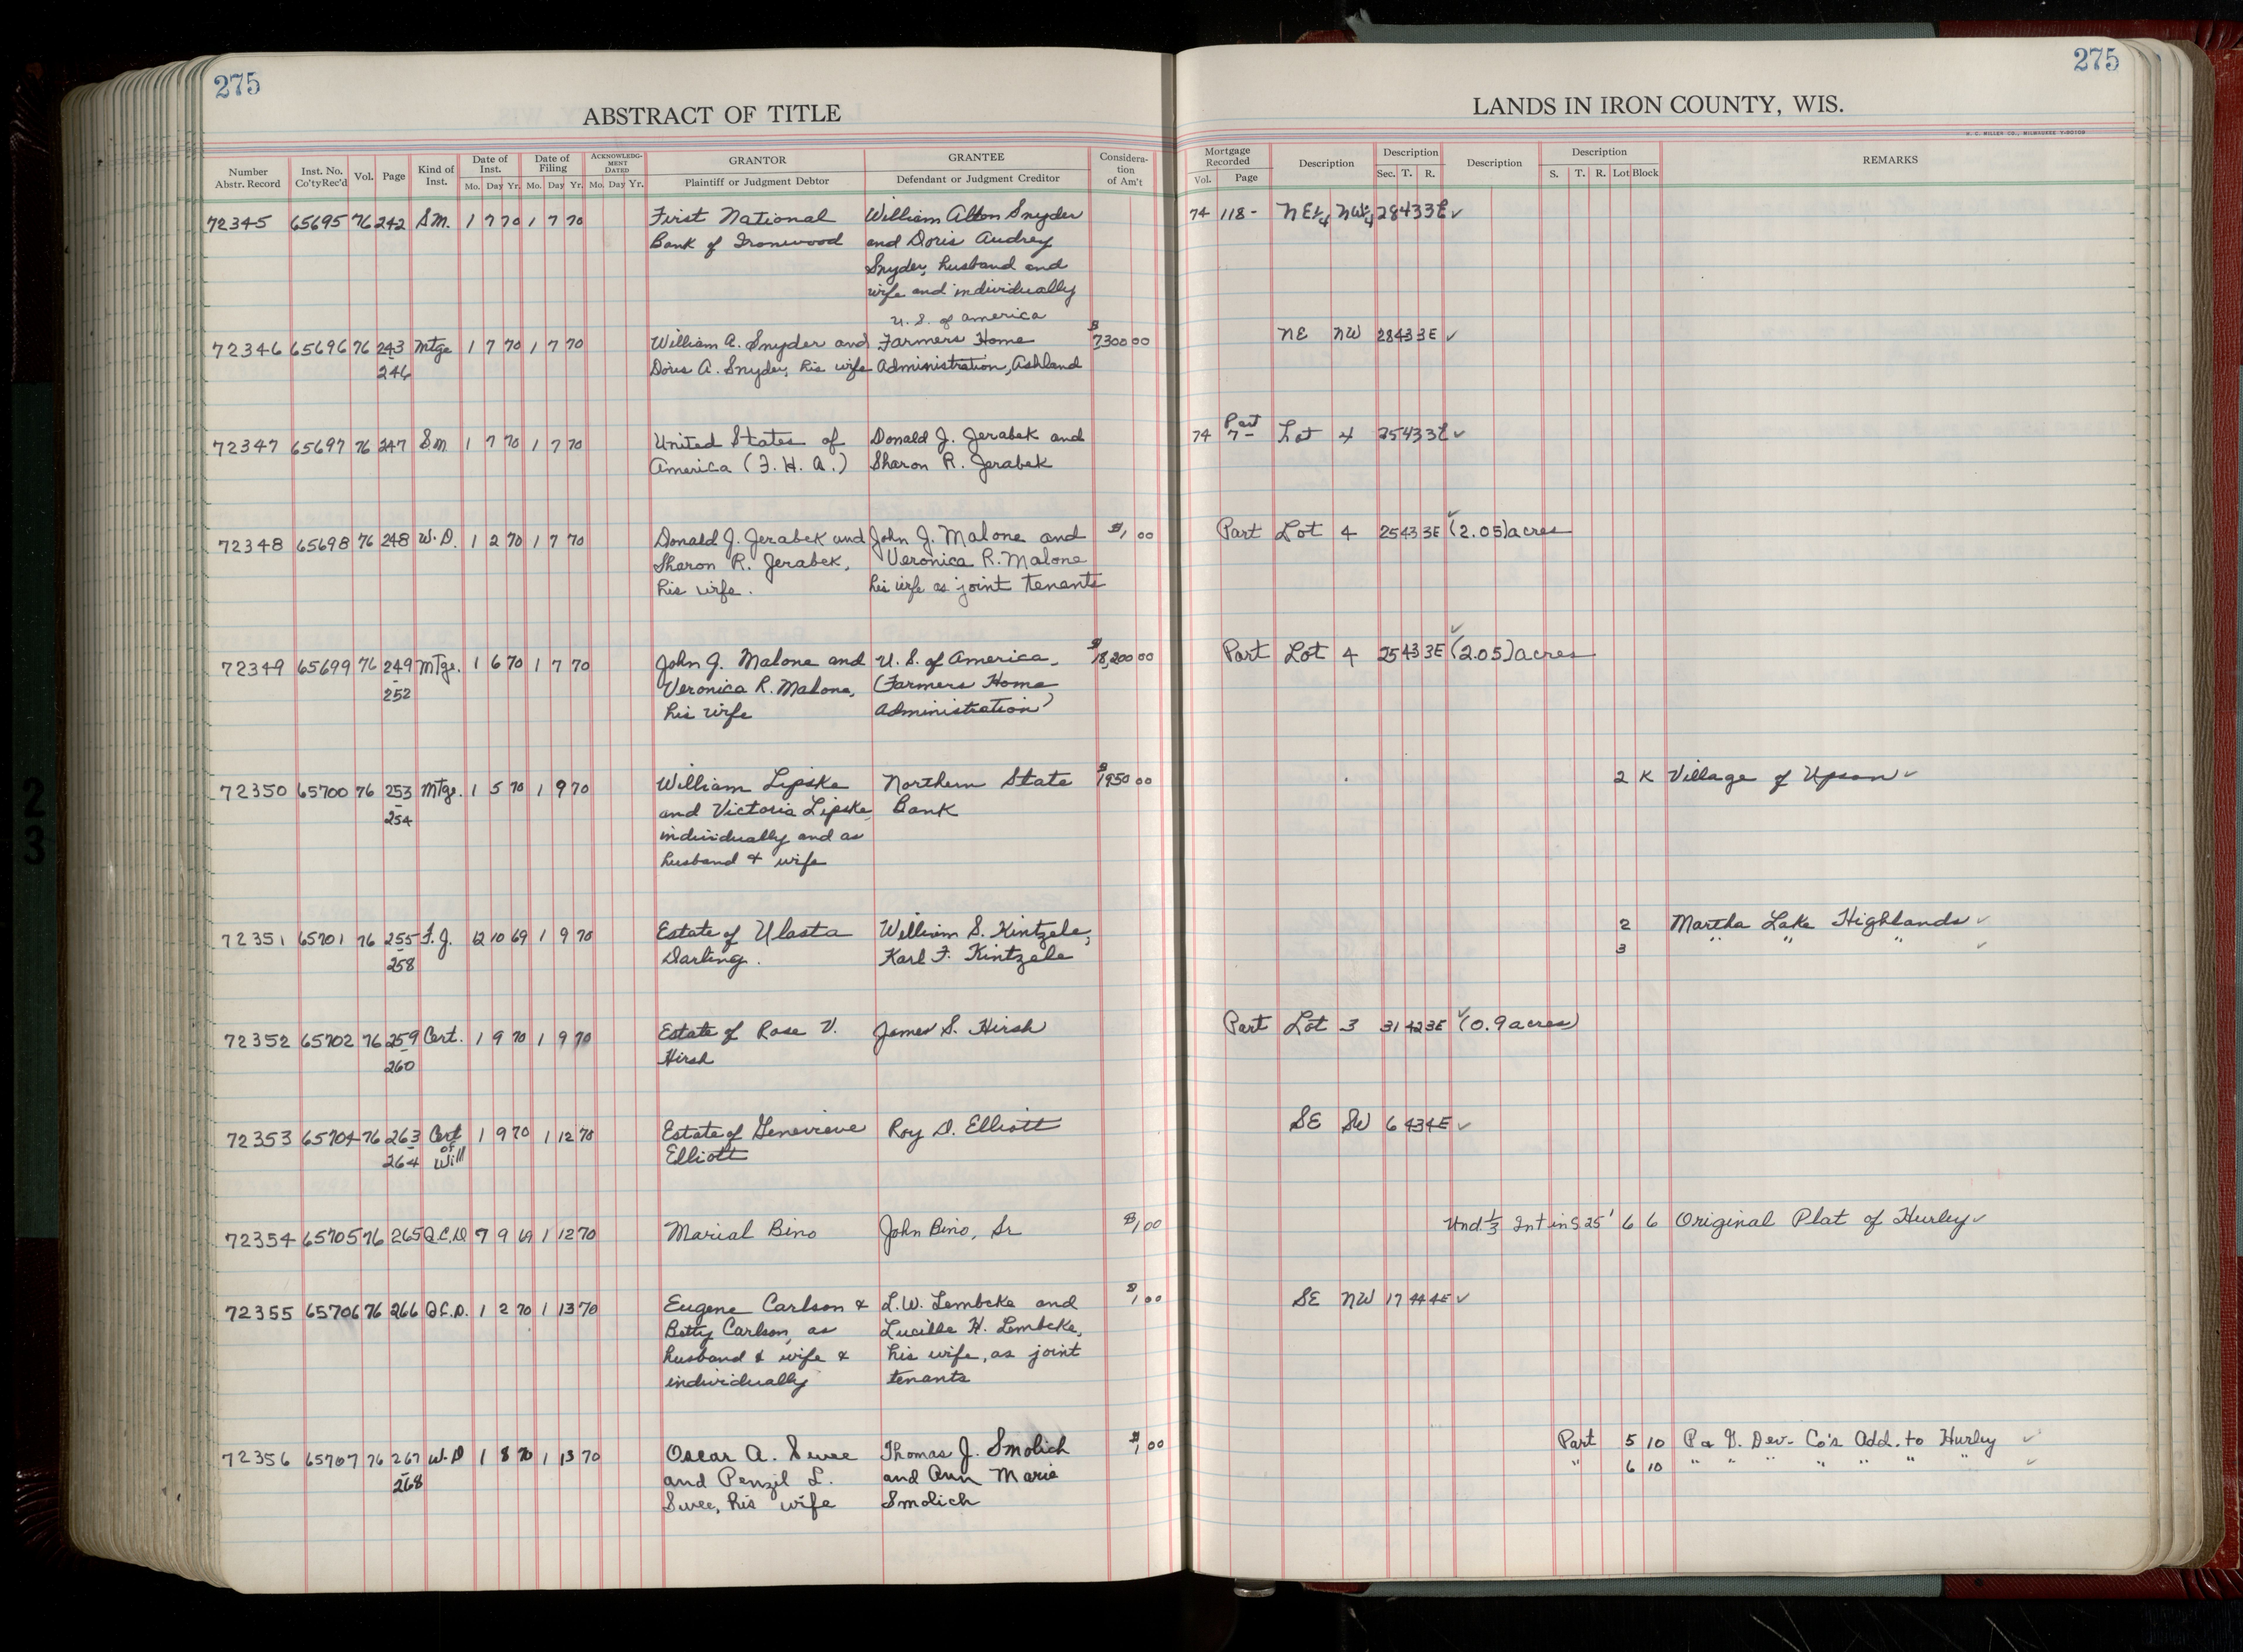 275
275
ABSTRACT OF TITLE
LANDS IN IRON COUNTY, WIS.
H. C. MILLER CO., MILWAUKEE
Number Abstr. Record | Inst. No. Co'ty Rec'd | Vol. | Page | Kind of Inst. | Date of Inst. Mo. Day Yr. | Date of Filing Mo. Day Yr. | ACKNOWLEDGMENT DATED Mo. Day Yr. | GRANTOR Plaintiff or Judgment Debtor | GRANTEE Defendant or Judgment Creditor | Consideration of Am't | Mortgage Recorded Vol. Page | Description | Description Sec. T. R. | Description | Description S. T. R. Lot Block | REMARKS
72345 65695 76 242 S.M. 1 7 70 1 7 70 First National William Alton Snyder 74 118- NE¼ NW¼ 28 43 3E ✓
Bank of Ironwood and Doris Audrey
Snyder, husband and
wife and individually
U. S. of America
72346 65696 76 243 Mtge 1 7 70 1 7 70 William A. Snyder and Farmers Home $7300 00 NE NW 28 43 3E ✓
- 246 Doris A. Snyder, his wife Administration, Ashland
72347 65697 76 247 S.M. 1 7 70 1 7 70 United States of Donald J. Jerabek and 74 7- Part Lot 4 25 43 3E ✓
America (F. H. A.) Sharon R. Jerabek
72348 65698 76 248 W.D. 1 2 70 1 7 70 Donald J. Jerabek and John J. Malone and $1 00 Part Lot 4 25 43 3E ✓ (2.05) acres
Sharon R. Jerabek, Veronica R. Malone
his wife. his wife as joint tenants
72349 65699 76 249 Mtge. 1 6 70 1 7 70 John J. Malone and U. S. of America $18,200 00 Part Lot 4 25 43 3E ✓ (2.05) acres
- 252 Veronica R. Malone, (Farmers Home
his wife Administration)
72350 65700 76 253 Mtge. 1 5 70 1 9 70 William Lipske Northern State $1950 00 2 K Village of Upson ✓
- 254 and Victoria Lipske, Bank
individually and as
husband & wife
72351 65701 76 255 F.J. 12 10 69 1 9 70 Estate of Vlasta William S. Kintzele, 2 Martha Lake Highlands ✓
- 258 Darling. Karl F. Kintzele 3 " " " ✓
72352 65702 76 259 Cert. 1 9 70 1 9 70 Estate of Rose V. James S. Hirsh Part Lot 3 31 42 3E ✓ (0.9 acres)
- 260 Hirsh
72353 65704 76 263 Cert of Will 1 9 70 1 12 70 Estate of Genevieve Roy D. Elliott SE SW 6 43 4E ✓
- 264 Elliott
72354 65705 76 265 Q.C.D. 7 9 69 1 12 70 Marial Bino John Bino, Sr $1 00 Und. 1/3 Int in S 25' 6 6 Original Plat of Hurley ✓
72355 65706 76 266 Q.C.D. 1 2 70 1 13 70 Eugene Carlson & L.W. Lembcke and $1 00 SE NW 17 44 4E ✓
Betty Carlson, as Lucille H. Lembcke,
husband & wife & his wife, as joint
individually tenants
72356 65707 76 267 W.D 1 8 70 1 13 70 Oscar A. Swee Thomas J. Smolich $1 00 Part 5 10 Dev. Co's Add. to Hurley ✓
- 268 and Penzil L. and Ann Marie " 6 10 " " " " " " " ✓
Swee, his wife Smolich